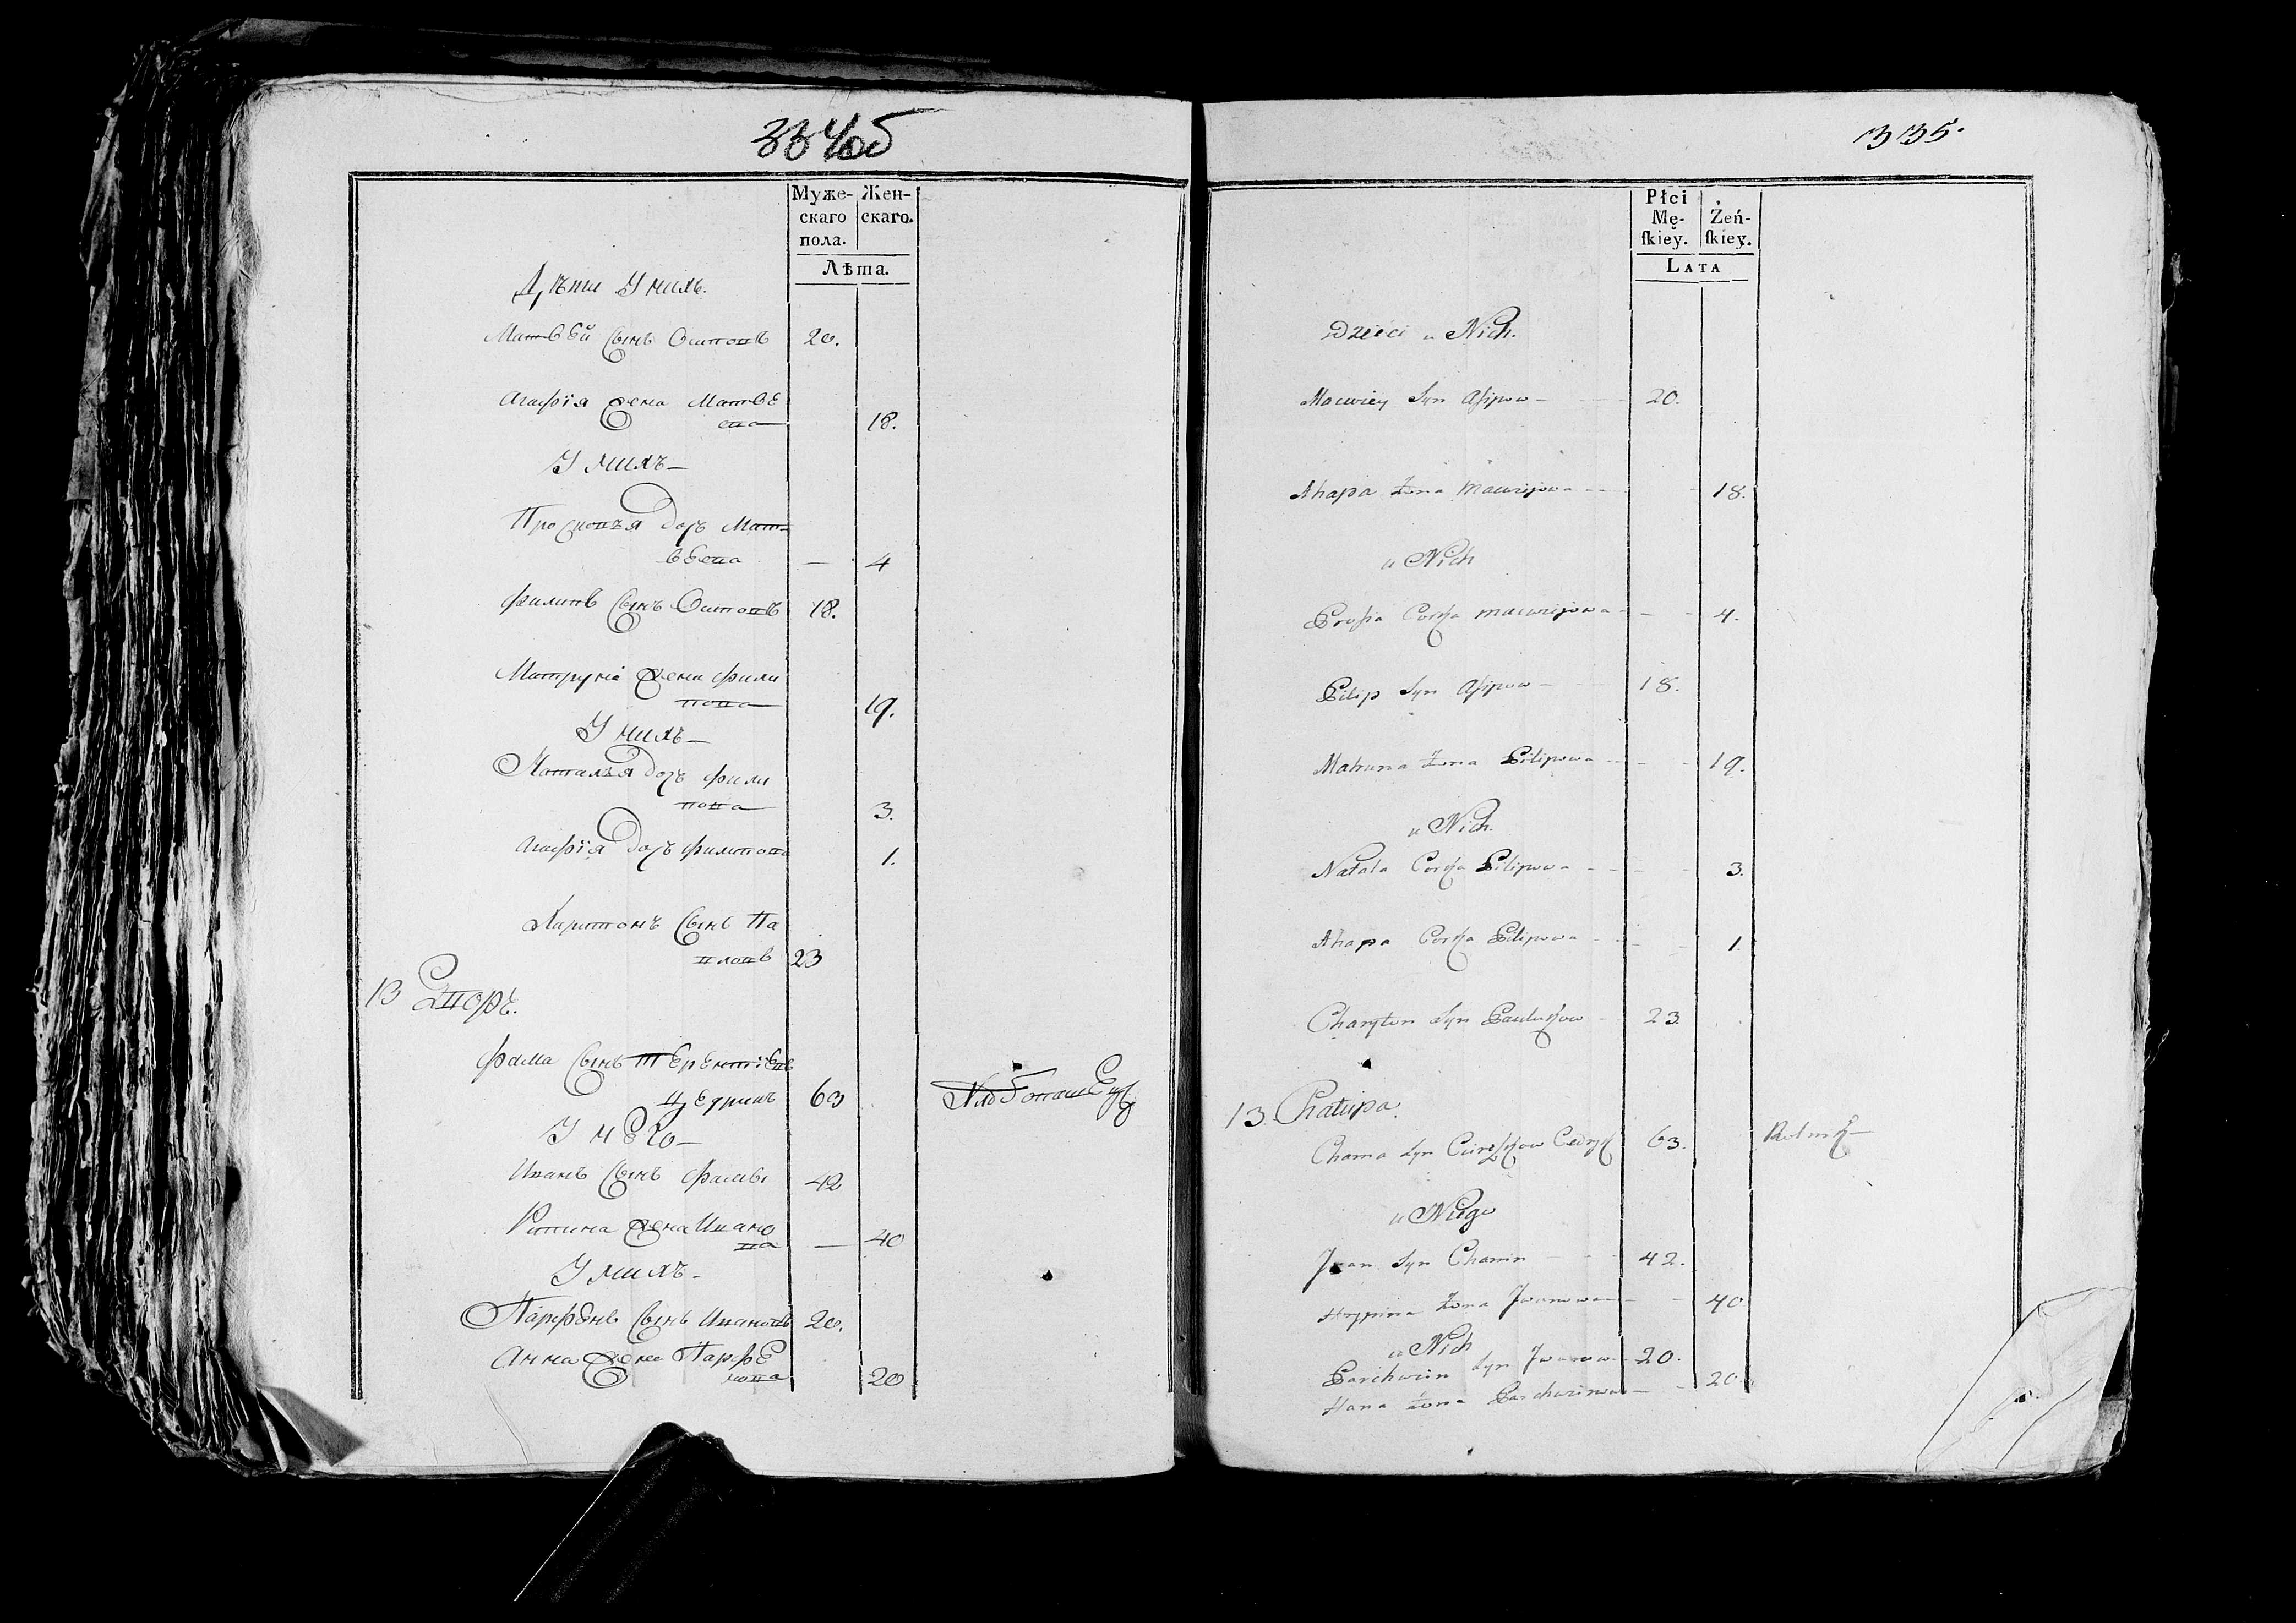 334об
Муже-
скаго
пола.
Жен-
скаго.
Лѣта.
Дѣти У нихъ.
Матвей Сынъ Осиповъ 20.
Агафія жена Матве
ева 18.
У нихъ —
Просковья дочь Мат-
веева — 4
Филипъ Сынъ Осиповъ 18.
Матруна жена Фили
пова 19.
У нихъ —
Наталья дочь Фили
пова 3.
Агафія дочь Филипова 1.
Харитонъ Сынъ Па
вловъ 23
13 Дворъ.
Фама Сынъ Терентіевъ
Цедрикъ 63 Хлебопашецъ
У Него —
Иванъ Сынъ Фамы 42
жена Ивано
ва — 40
У нихъ —
Парфенъ Сынъ Ивановъ 20.
Анна жена Парфе
нова 20
335.
Płci
Mę-
skiey.
Żeń-
skiey.
LATA
Dzieci u Nich.
Macwiey Syn Asipow — 20.
Ahapa Żona Macwiejowa — 18.
u Nich
Prosia Corka Macwiejowa — 4.
Pilip Syn Asipow — 18.
Matruna Żona Pilipowa — 19.
u Nich.
Natala Corka Pilipowa — 3.
Ahapa Corka Pilipowa — 1.
Charyton Syn Pawlukow — 23.
13. Chałupa.
Chama Syn Cedryk 63. Rolnik —
u Niego
Jwan Syn Chamin — 42.
Hrypina Żona Jwanowa — 40
u Nich
Parchwin Syn Jwanow — 20.
Hana Żona Parchwinowa — 20.